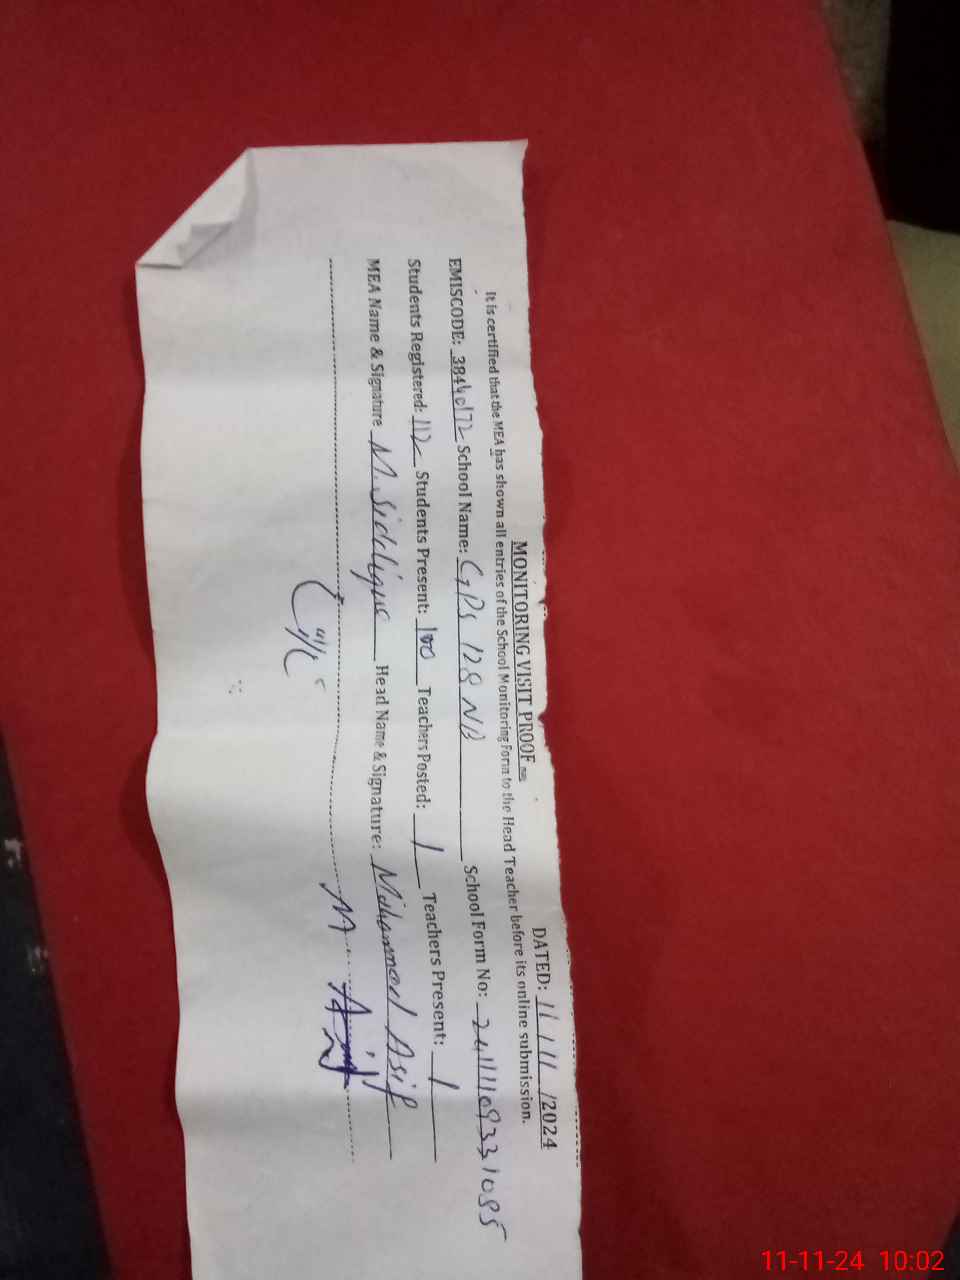 MONITORING VISIT PROOF
DATED: 11/11/2024
It is certified that the MEA has shown all entries of the School Monitoring Form to the Head Teacher before its online submission.
EMISCODE: 38440172 School Name: GPS 128 NB School Form No: 24111109331085
Students Registered: 112 Students Present: 100 Teachers Posted: 1 Teachers Present: 1
MEA Name & Signature M. Siddique Head Name & Signature: Mohammad Asif
11-11-24 10:02